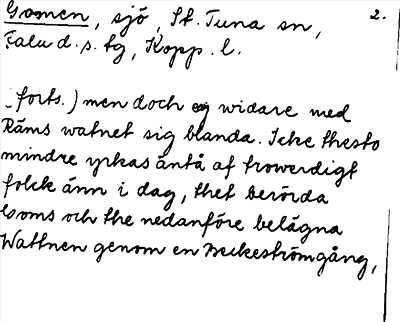 Gomen, sjö, St. Tuna sn, 2.
Falu d. s. tg, Kopp. l.
(forts.) men doch ey widare med
Räms watnet sig blanda. Icke thesto
mindre yrkas äntå af trowerdigt
folck änn i dag, thet berörda
Goms och the nedanföre belägna
Wattnen genom en Beckeströmgång,